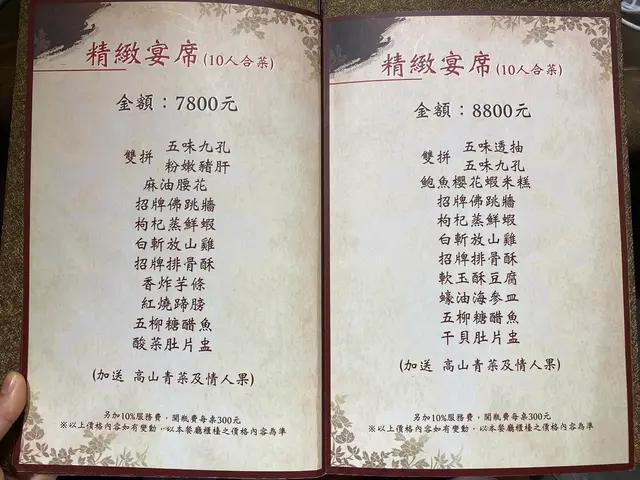 精緻宴席(10人合菜)
金額：7800元
雙拼 五味九孔
粉嫩豬肝
麻油腰花
招牌佛跳牆
枸杞蒸鮮蝦
白斬放山雞
招牌排骨酥
香炸芋條
紅燒蹄膀
五柳糖醋魚
酸菜肚片盅
(加送 高山青菜及情人果)
另加10%服務費，開瓶費每桌300元
※以上價格內容如有變動，以本餐廳櫃檯之價格內容為準
精緻宴席(10人合菜)
金額：8800元
雙拼 五味透抽
五味九孔
鮑魚櫻花蝦米糕
招牌佛跳牆
枸杞蒸鮮蝦
白斬放山雞
招牌排骨酥
軟玉酥豆腐
蠔油海參皿
五柳糖醋魚
干貝肚片盅
(加送 高山青菜及情人果)
另加10%服務費，開瓶費每桌300元
※以上價格內容如有變動，以本餐廳櫃檯之價格內容為準